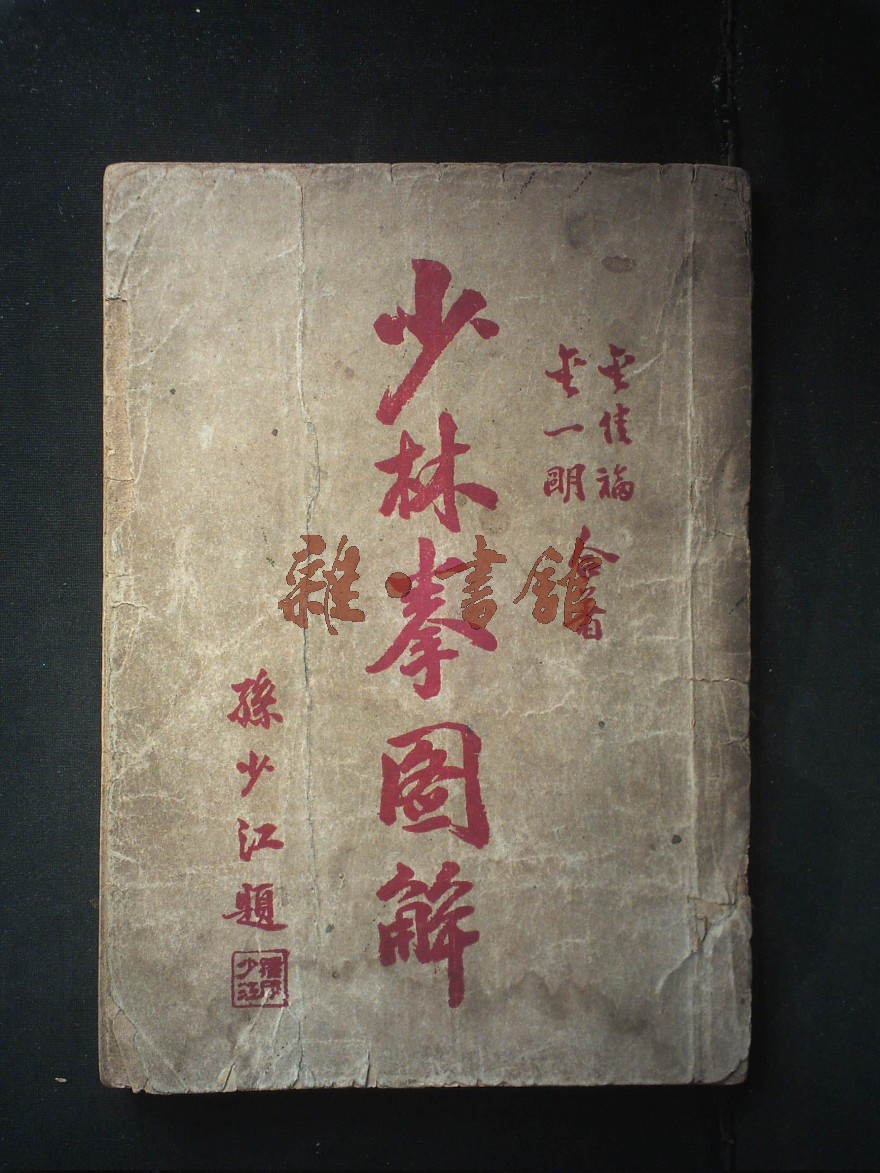 金佳福
金一明
合著
少林拳圖解
孫少江題
雜·書館